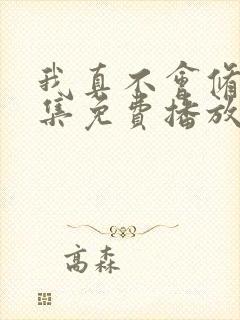 我真不會修
集免費播放
高森